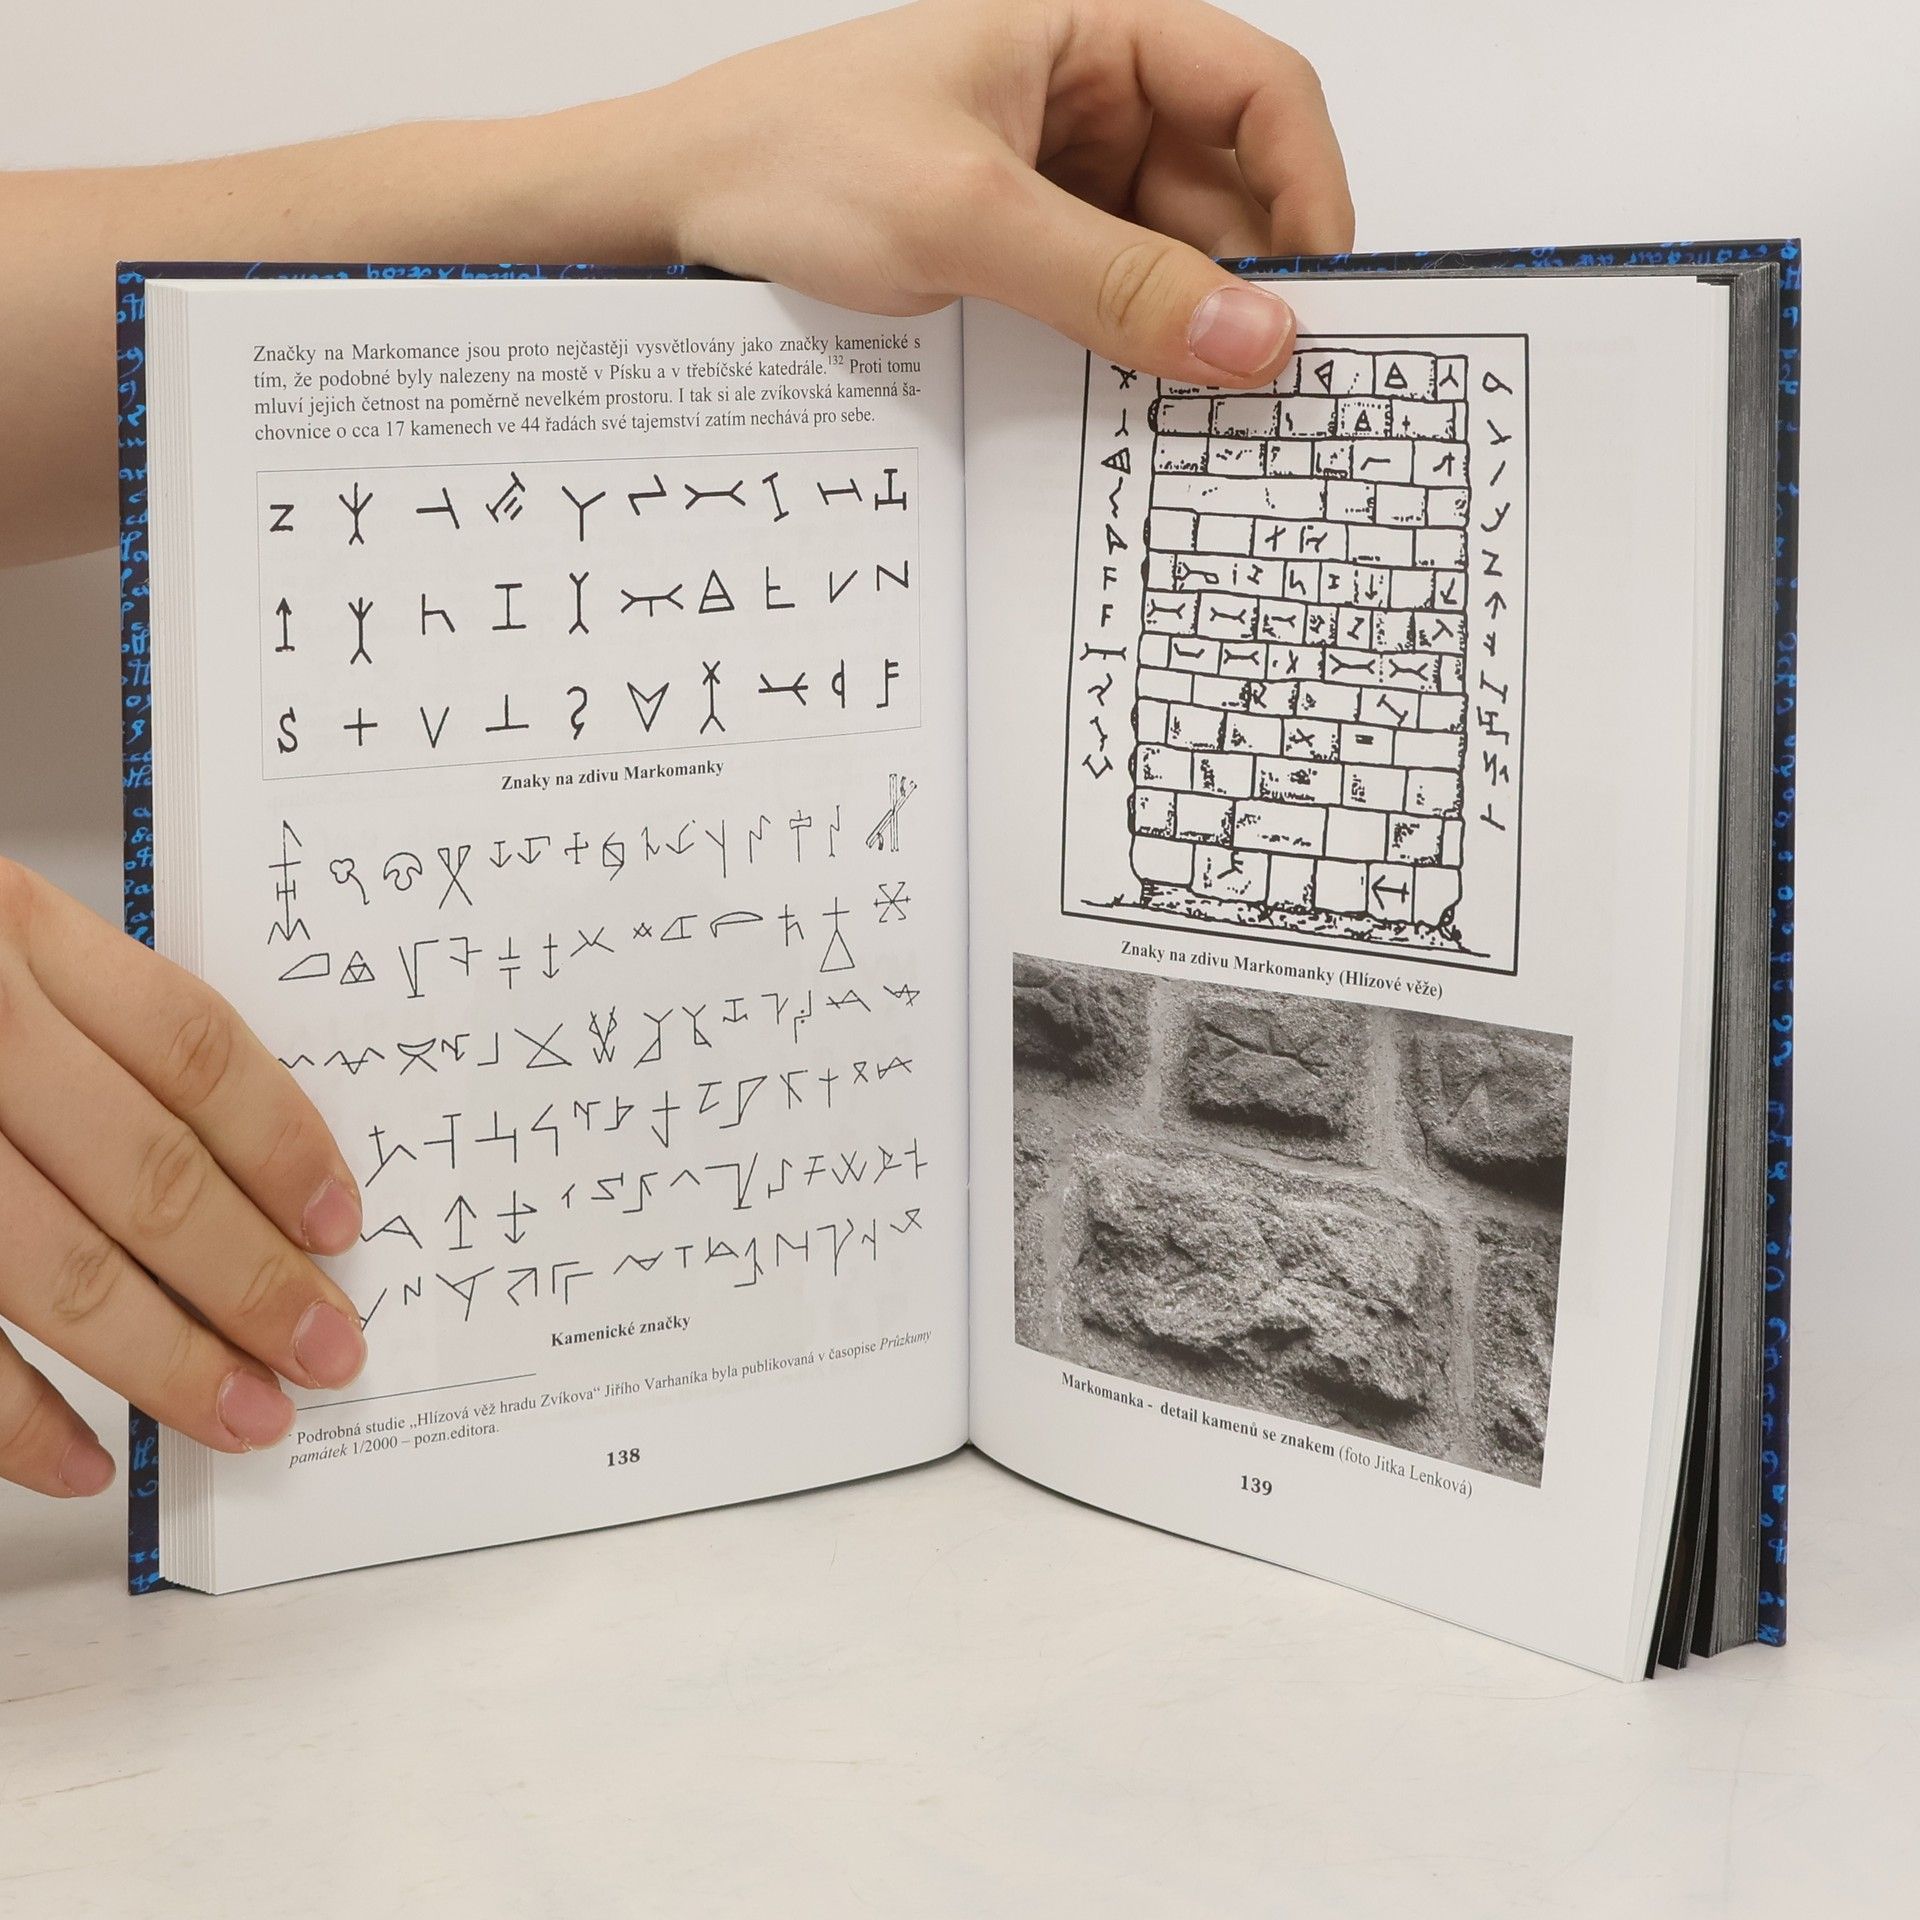 Značky na Markomance jsou proto nejčastěji vysvětlovány jako značky kamenické s
tím, že podobné byly nalezeny na mostě v Písku a v třebíčské katedrále.132 Proti tomu
mluví jejich četnost na poměrně nevelkém prostoru. I tak si ale zvíkovská kamenná ša-
chovnice o cca 17 kamenech ve 44 řadách své tajemství zatím nechává pro sebe.
Znaky na zdivu Markomanky
Kamenické značky
Podrobná studie „Hlízová věž hradu Zvíkova“ Jiřího Varhaníka byla publikovaná v časopise Průzkumy
památek 1/2000 – pozn.editora.
138
Znaky na zdivu Markomanky (Hlízové věže)
Markomanka - detail kamenů se znakem (foto Jitka Lenková)
139